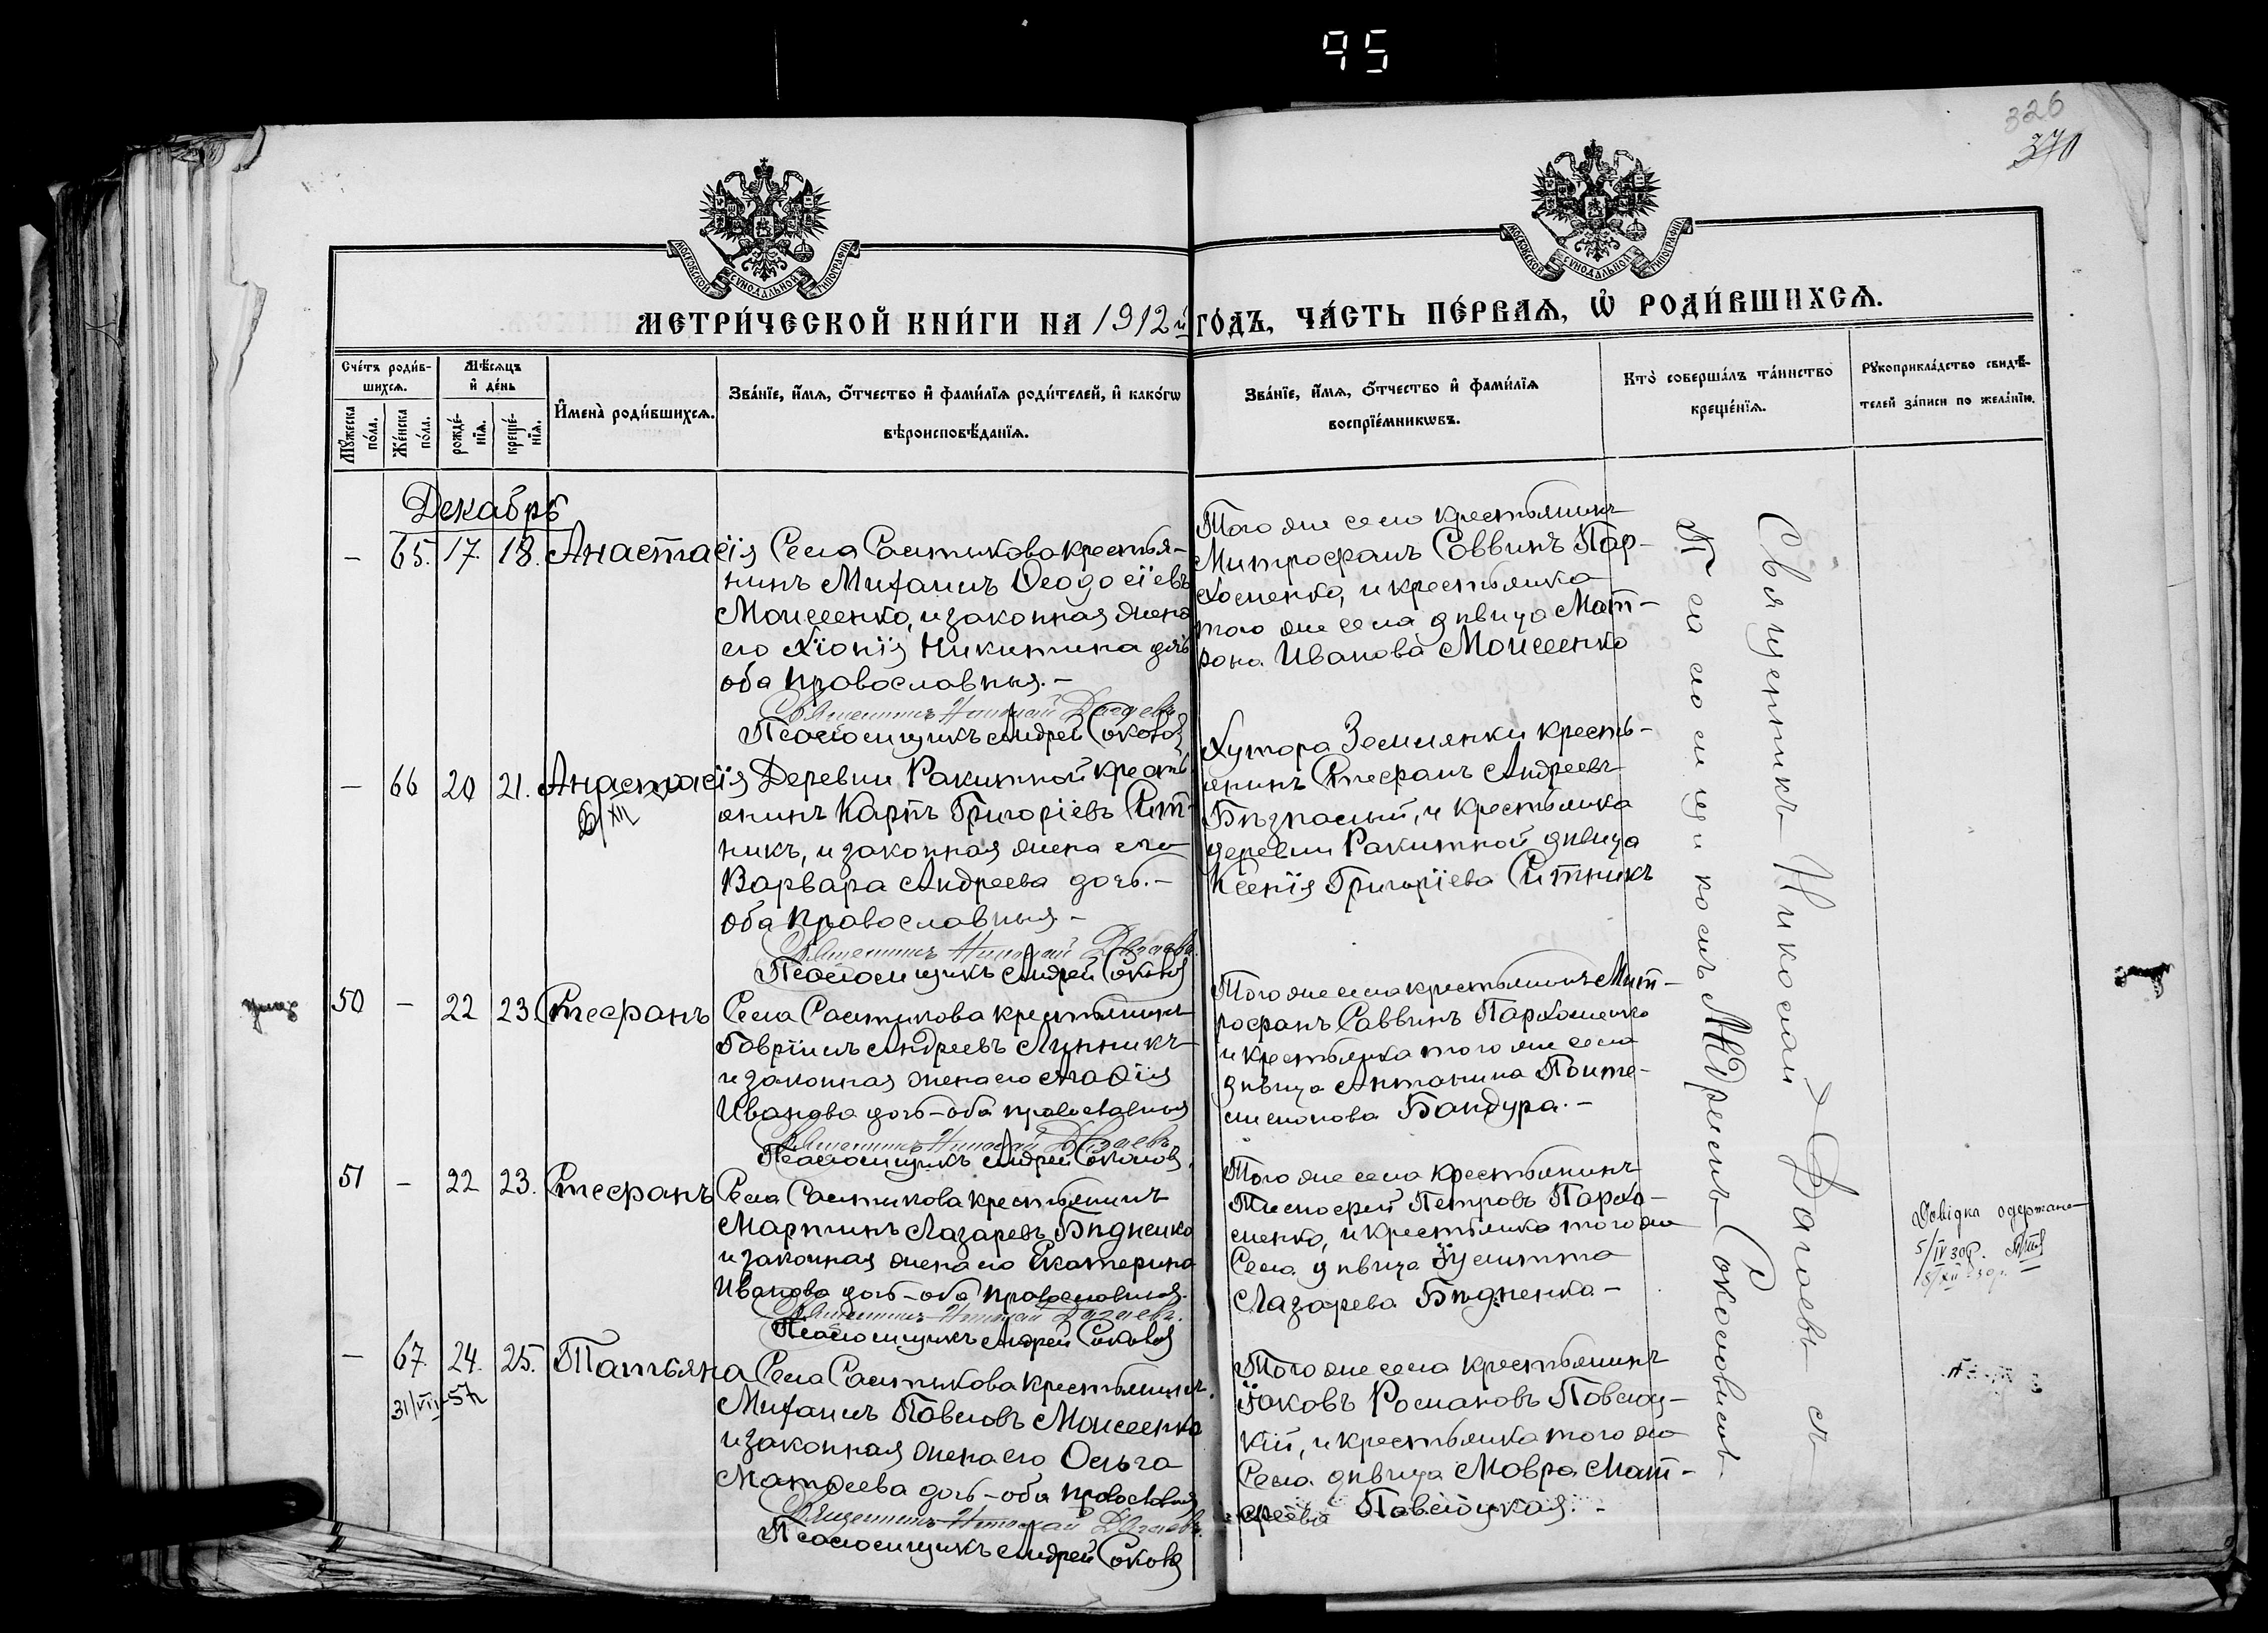 95
326
370
МОСКОВСКОЙ СУНОДАЛЬНОЙ ТИПОГРАФІИ
МОСКОВСКОЙ СУНОДАЛЬНОЙ ТИПОГРАФІИ
МЕТРИ́ЧЕСКОЙ КНИ́ГИ НА 1912 й ГО́ДЪ, ЧА́СТЬ ПЕ́РВАѦ, Ѽ РОДИ́ВШИХСѦ.
Сче́тъ роди́в-
шихсѧ.
Мꙋ́жеска по́ла.
Же́нска по́ла.
Мѣ́сѧцъ и҆ де́нь
рожде́-
нїѧ.
креще́-
нїѧ.
И҆мена̀ роди́вшихсѧ.
Зва́нїе, и҆́мѧ, ѻ҆́тчество и҆ фами́лїѧ роди́телей, и҆ како́гѡ
вѣроисповѣ́данїѧ.
Зва́нїе, и҆́мѧ, ѻ҆́тчество и҆ фами́лїѧ
воспрїе́мникѡвъ.
Кто̀ соверша́лъ та́инство
креще́нїѧ.
Рꙋкоприкла́дство свидѣ́-
телей за́писи по жела́нїю.
Декабрь
— 65. 17. 18. Анастасія Села Салтикова крестья-
нинъ Михаилъ Ѳеодосіевъ
Моисеенко, и законная жена
его Хіонія Никитина дочь
оба православныя. —
Священникъ Николай Дагаевъ
Псаломщикъ Андрей Соколов
Того же села крестьянинъ
Митрофанъ Саввинъ Пар-
хоменко, и крестьянка
того же села дѣвица Мат-
рона Иванова Моисеенко
— 66 20 21. Анастасія Деревни Ракитной кресть-
янинъ Карпъ Григоріевъ Сит-
никъ, и законная жена его
Варвара Андреева дочь. —
оба православныя —
XII
Священникъ Николай Дагаевъ.
Псаломщикъ Андрей Соколов
Хутора Землянки кресть-
янинъ Стефанъ Андреевъ
и крестьянка
деревни Ракитной дѣвица
Ксенія Григоріева Ситникъ
50 — 22 23 Стефанъ Села Салтикова крестьянинъ
Гавріилъ Андреевъ Линникъ
и законная жена его Агаѳія
Иванова дочь — оба православныя
Священникъ Николай Дагаевъ
Псаломщикъ Андрей Соколов
Того же села крестьянинъ Мит-
рофанъ Саввинъ Пархоменко
и крестьянка того же села
дѣвица Антонина Панте-
лимонова Бандура. —
51 — 22 23. Стефанъ Села Салтикова крестьянинъ
Мартинъ Лазаревъ Бѣдненко
и законная жена его Екатерина
Иванова дочь — оба православныя.
Священникъ Николай Дагаевъ.
Псаломщикъ Андрей Соколов
Того же села крестьянинъ
Тимофей Петровъ Пархо-
менко, и крестьянка того же
Села дѣвица Іулитта
Лазарева Бѣдненко —
Довідка одержана
5/IV 30р.
— 67. 24. 25. Татьяна Села Салтикова крестьянинъ
Михаилъ Павловъ Моисеенко
и законная жена его Ольга
Матѳеева дочь — оба православныя
31/VII-57
Священникъ Николай Дагаевъ.
Псаломщикъ Андрей Соколов
Того же села крестьянинъ
Іаковъ Романовъ Павлоц-
кій, и крестьянка того же
Села дѣвица Мавра Мат-
феева Павлоцкая. —
Священникъ Николай Дагаевъ съ
Псаломщикомъ Андреемъ Соколовымъ